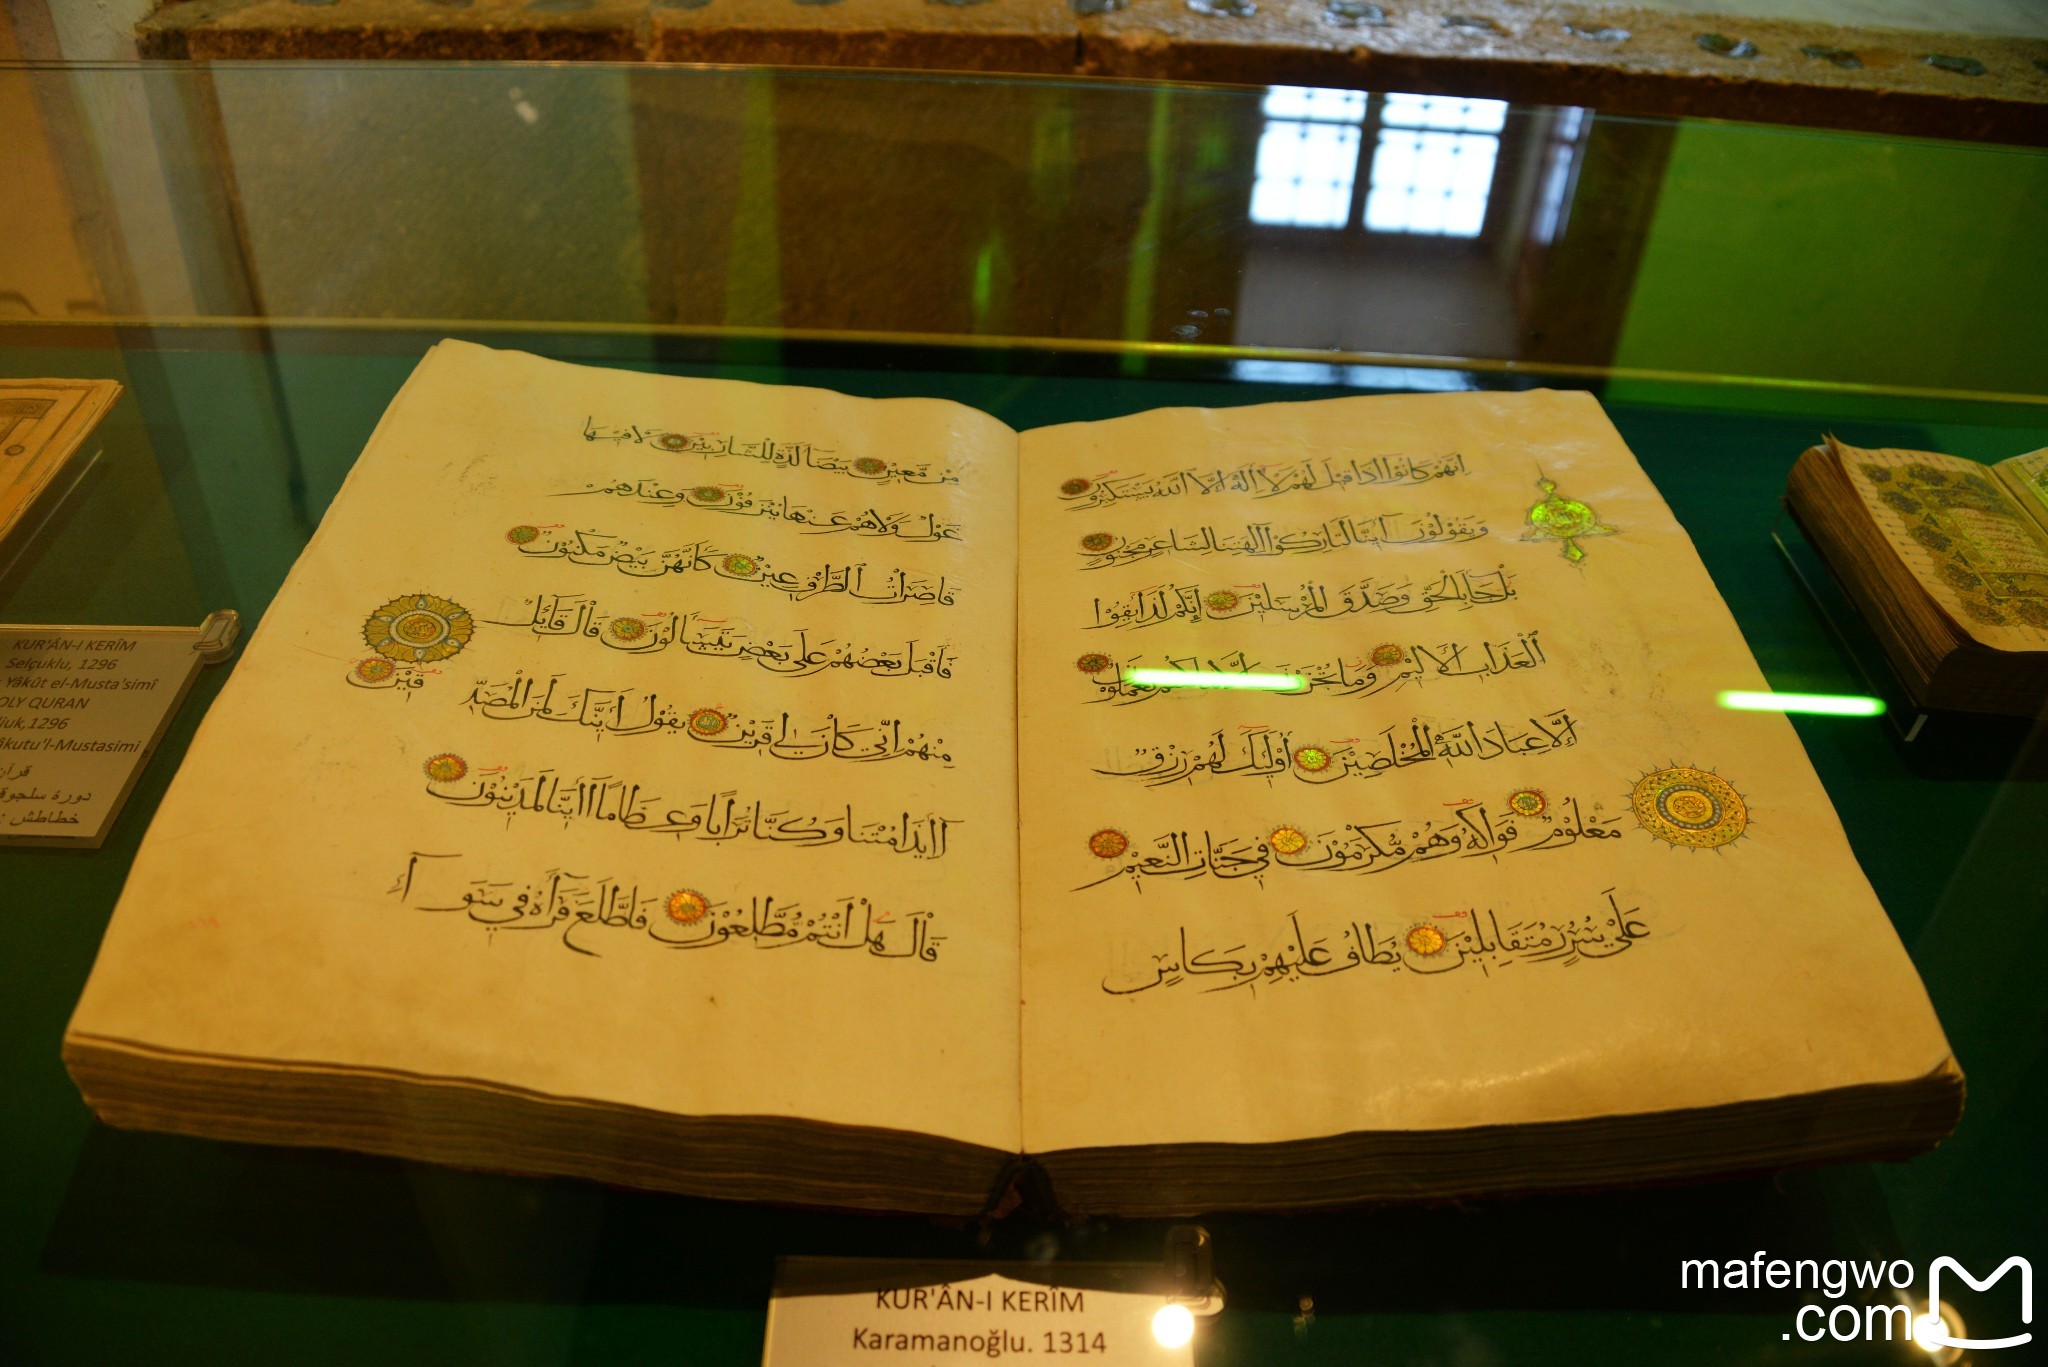 إِنَّهُمْ كَانُوا إِذَا قِيلَ لَهُمْ لَا إِلَهَ إِلَّا اللَّهُ يَسْتَكْبِرُونَ
وَيَقُولُونَ أَئِنَّا لَتَارِكُوا آلِهَتِنَا لِشَاعِرٍ مَجْنُونٍ
بَلْ جَاءَ بِالْحَقِّ وَصَدَّقَ الْمُرْسَلِينَ إِنَّكُمْ لَذَائِقُوا
الْعَذَابِ الْأَلِيمِ وَمَا تُجْزَوْنَ إِلَّا مَا كُنْتُمْ تَعْمَلُونَ
إِلَّا عِبَادَ اللَّهِ الْمُخْلَصِينَ أُولَئِكَ لَهُمْ رِزْقٌ
مَعْلُومٌ فَوَاكِهُ وَهُمْ مُكْرَمُونَ فِي جَنَّاتِ النَّعِيمِ
عَلَى سُرُرٍ مُتَقَابِلِينَ يُطَافُ عَلَيْهِمْ بِكَأْسٍ
مِنْ مَعِينٍ بَيْضَاءَ لَذَّةٍ لِلشَّارِبِينَ لَا فِيهَا
غَوْلٌ وَلَا هُمْ عَنْهَا يُنْزَفُونَ وَعِنْدَهُمْ
قَاصِرَاتُ الطَّرْفِ عِينٌ كَأَنَّهُنَّ بَيْضٌ مَكْنُونٌ
فَأَقْبَلَ بَعْضُهُمْ عَلَى بَعْضٍ يَتَسَاءَلُونَ قَالَ قَائِلٌ
مِنْهُمْ إِنِّي كَانَ لِي قَرِينٌ يَقُولُ أَئِنَّكَ لَمِنَ الْمُصَدِّ
قِينَ
أَإِذَا مِتْنَا وَكُنَّا تُرَابًا وَعِظَامًا أَئِنَّا لَمَدِينُونَ
قَالَ هَلْ أَنْتُمْ مُطَّلِعُونَ فَاطَّلَعَ فَرَآهُ فِي سَوَاءِ
KUR'ÂN-I KERÎM
Selçuklu, 1296
Yâkût el-Musta'simî
QURAN
1296
Mustasimi
قرآن
دورۀ
خطاطش
KUR'ÂN-I KERÎM
Karamanoğlu. 1314
mafengwo
.com